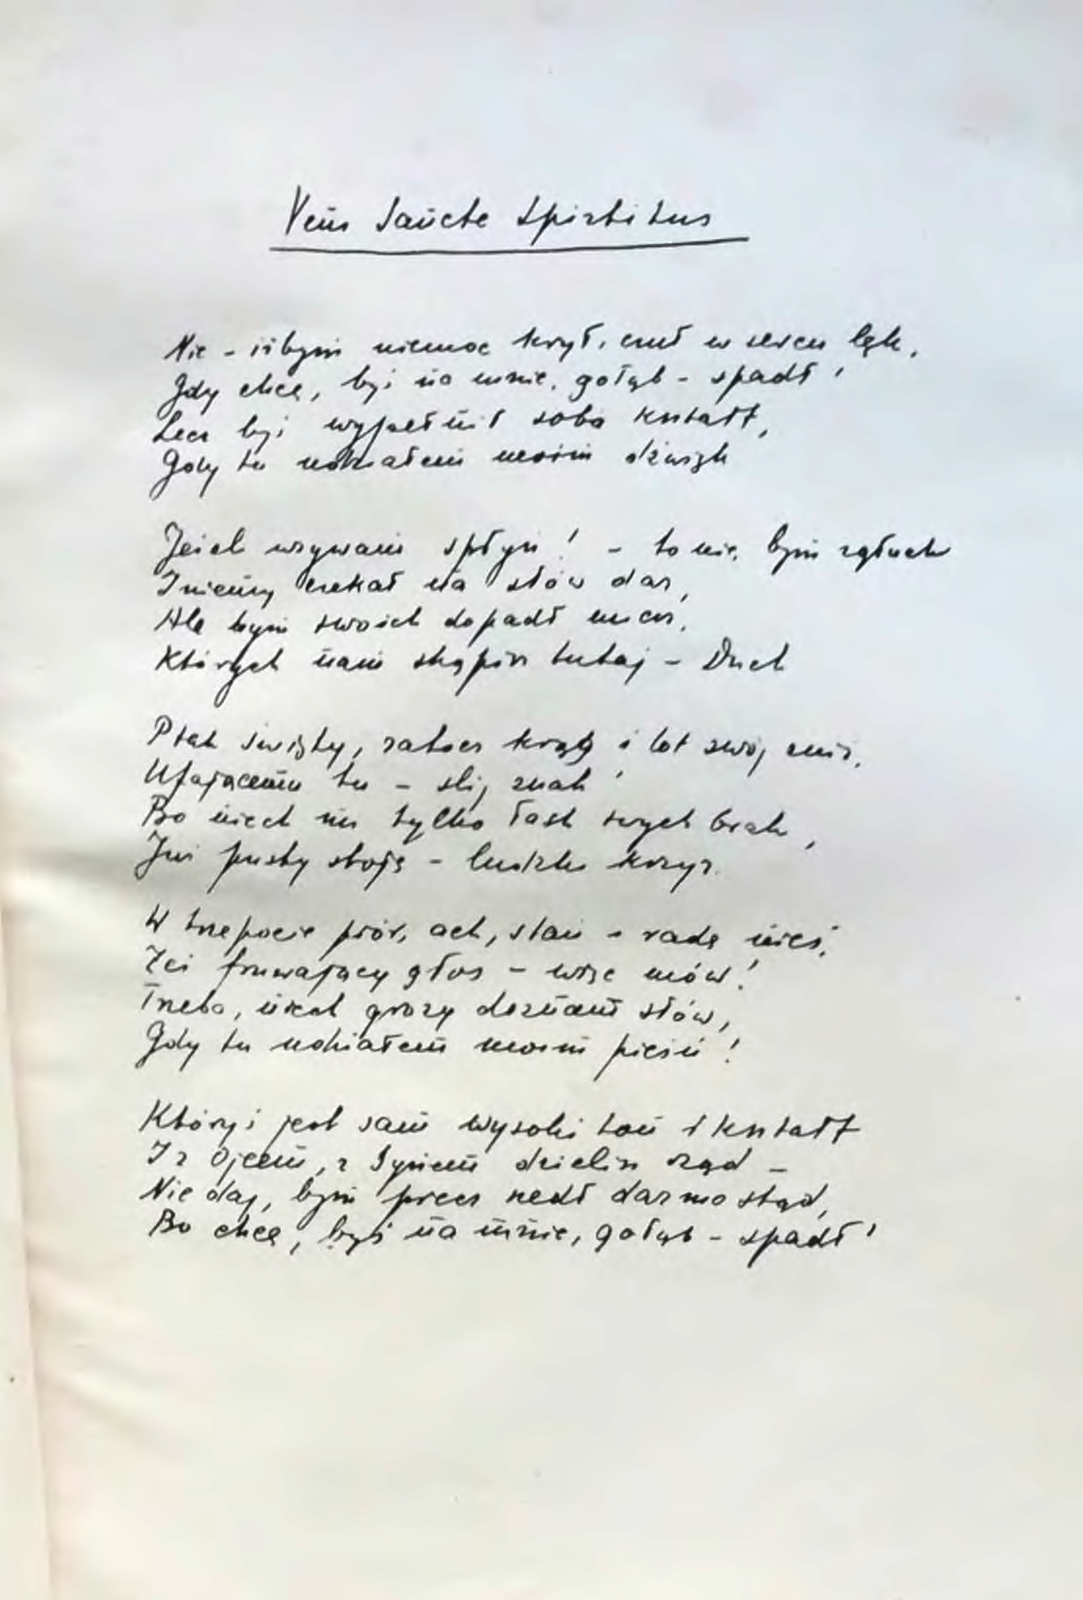 Veni Sancte Spiritus
Nie - iżbym niemoc krył, czuł w sercu lęk,
Gdy chcę, byś na mnie, gołąb - spadł!
Lecz byś wypełnił sobą kształt,
Gdy tu uchiałem moim dźwięk
Jeśli wzywam spłyń! - to nie, bym zgłuch
I niemy czekał na słów dar,
Ale bym swoich dopadł miar,
Których nam skąpisz tutaj - Duch
Ptak święty, zatocz krąg i lot swój zniż,
Ufającemu tu - ślij znak!
Bo niech mi tylko łask twych brak,
Już pusty stoję - ludzki krzyż.
W trzepocie piór, ach, stań - radę nieś,
Żeś fruwający głos - więc mów!
Trzeba, niech grozy doznam słów,
Gdy tu uchiałem moim pieśń!
Któryś jest sam wysoki ton i kształt
I z Ojcem, z Synem dzielisz rząd -
Nie daj, bym precz szedł darmo stąd,
Bo chcę, byś na mnie, gołąb - spadł!